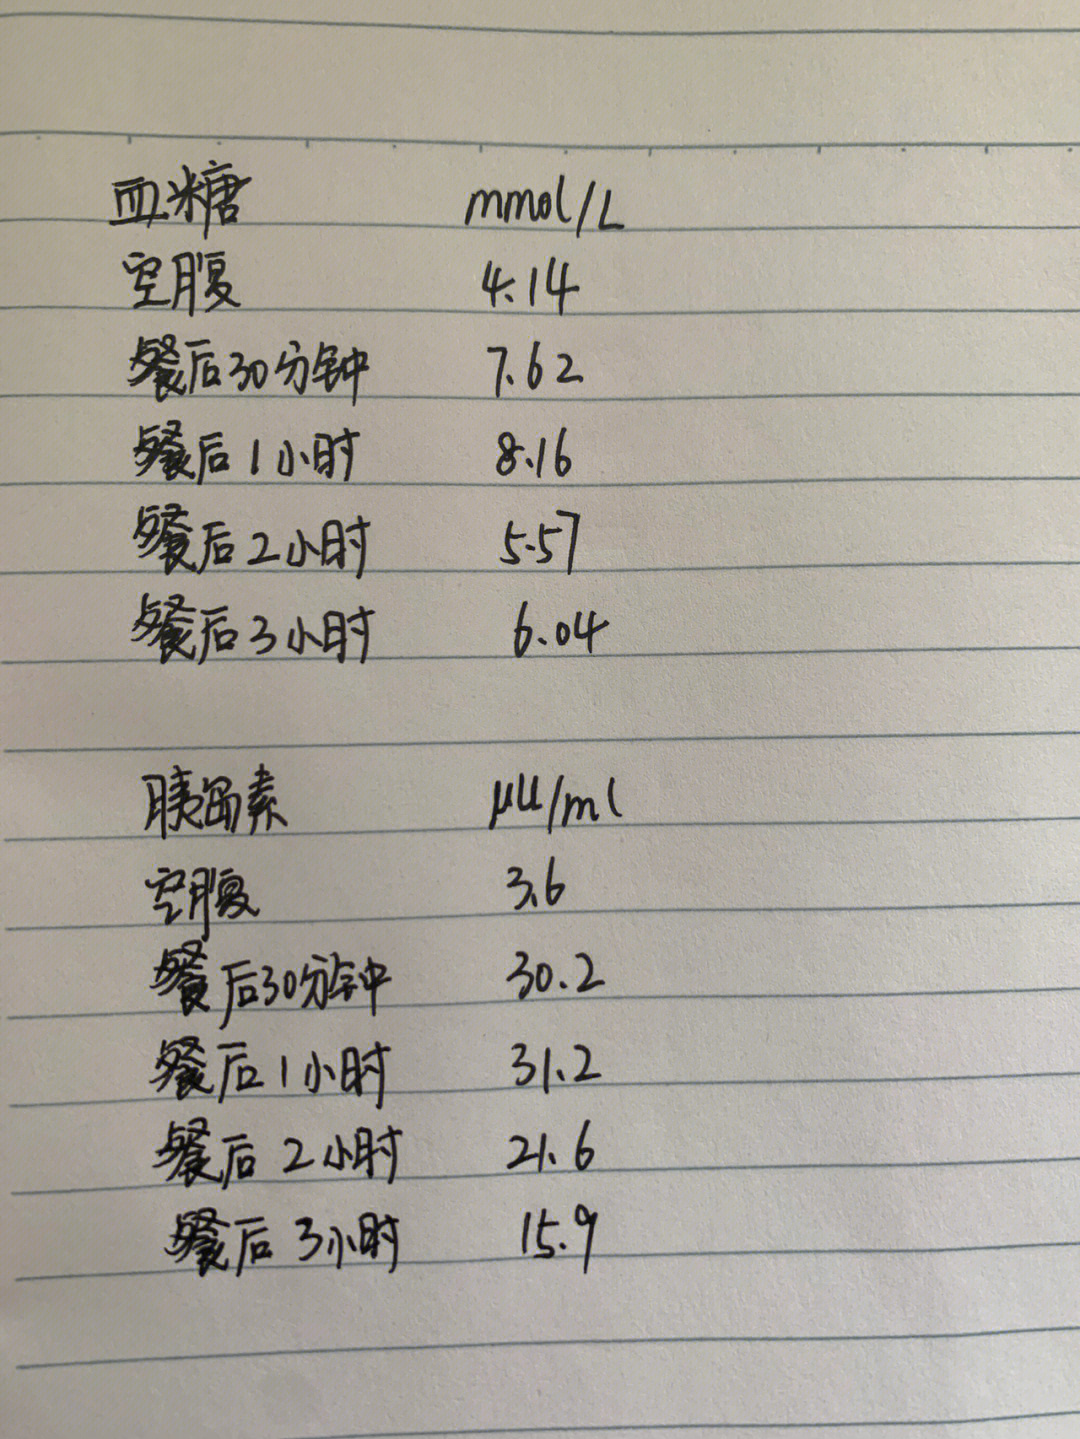 血糖 mmol/L
空腹 4.14
餐后30分钟 7.62
餐后1小时 8.16
餐后2小时 5.57
餐后3小时 6.04
胰岛素 μU/ml
空腹 3.6
餐后30分钟 30.2
餐后1小时 31.2
餐后2小时 21.6
餐后3小时 15.9